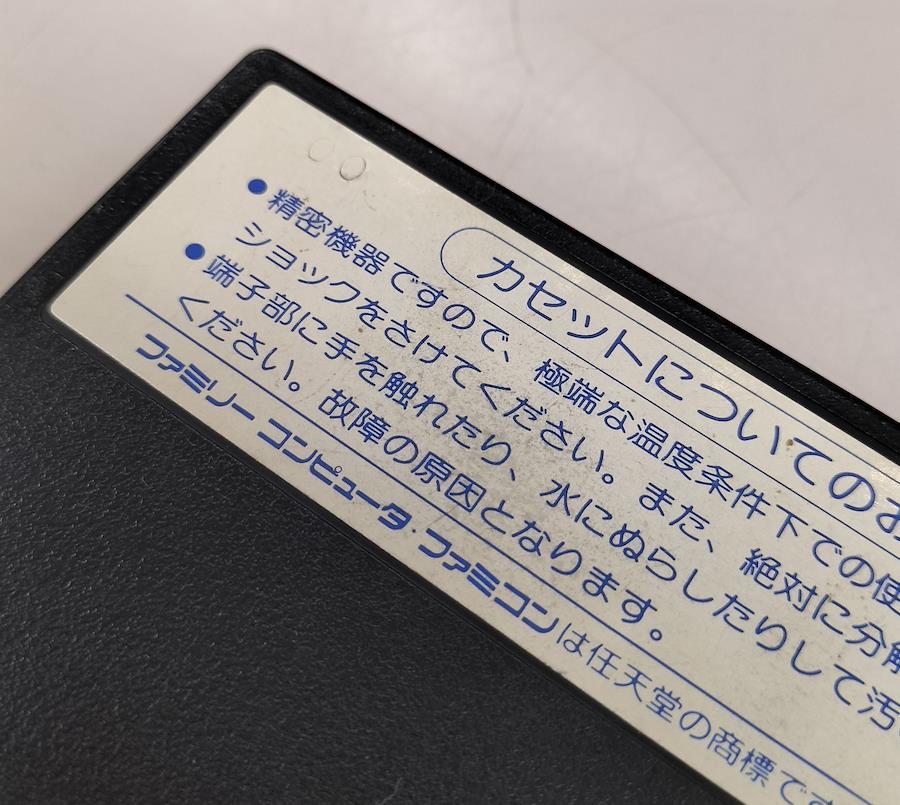 カセットについてのお
精密機器ですので、極端な温度条件下での使
ショックをさけてください。また、絶対に分解
端子部に手を触れたり、水にぬらしたりして汚
ください。故障の原因となります。
ファミリー コンピュータ・ファミコンは任天堂の商標です